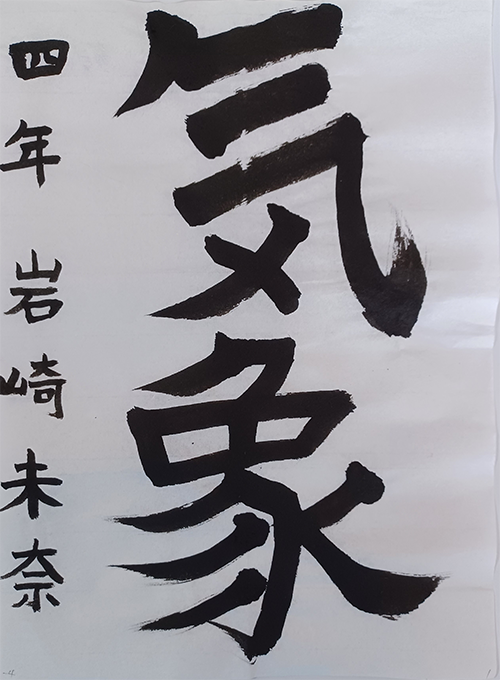 気象
四年 岩崎未奈